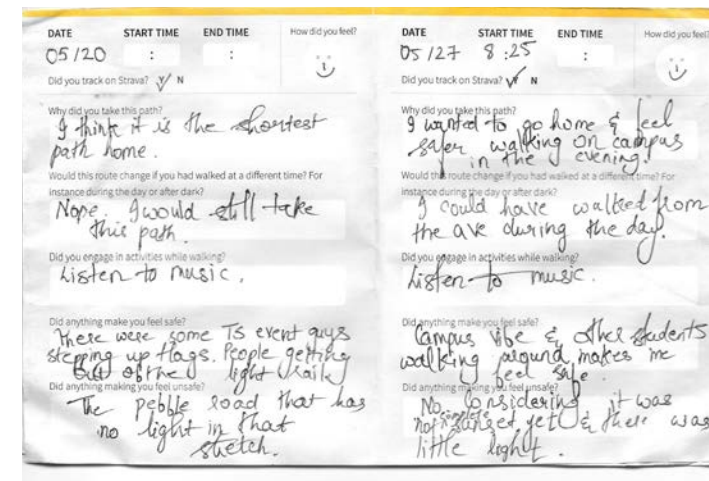 DATE START TIME END TIME How did you feel?
05/20 : :
Did you track on Strava? Y N
Why did you take this path?
I think it is the shortest
path home.
Would this route change if you had walked at a different time? For
instance during the day or after dark?
Nope. I would still take
this path.
Did you engage in activities while walking?
Listen to music.
Did anything make you feel safe?
There were some TS event guys
stepping up flags. People getting
out of the light rail
Did anything making you feel unsafe?
The pebble road that has
no light in that
stretch.
DATE START TIME END TIME How did you feel?
05/27 8:25 :
Did you track on Strava? Y N
Why did you take this path?
I wanted to go home & feel
safer walking on campus
in the evening.
Would this route change if you had walked at a different time? For
instance during the day or after dark?
I could have walked from
the ave during the day.
Did you engage in activities while walking?
Listen to music.
Did anything make you feel safe?
Campus vibe & other students
walking around makes me
feel safe
Did anything making you feel unsafe?
No, Considering it was
not complete sunset yet & there was
little light.